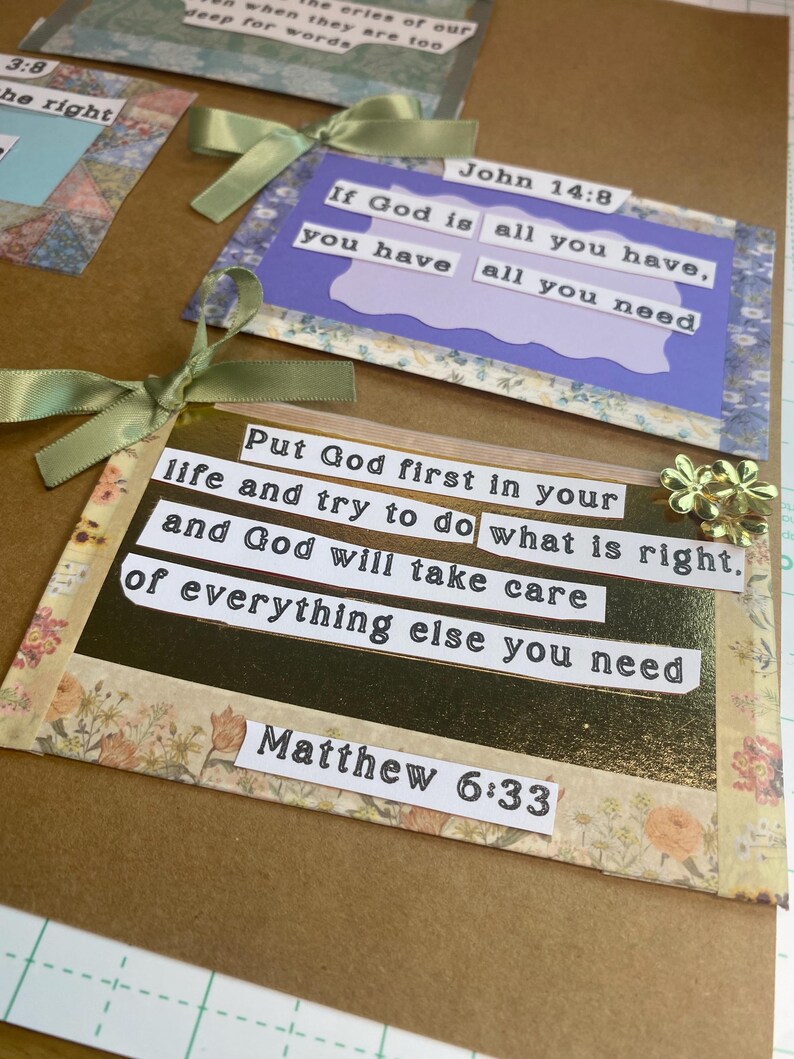 the cries of our
even when they are too
deep for words
3:8
the right
John 14:8
If God is all you have,
you have all you need
Put God first in your
life and try to do what is right.
and God will take care
of everything else you need
Matthew 6:33